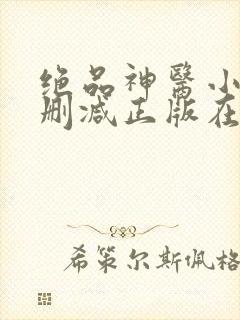 绝品神醫小
删减正版在
希策尔斯佩格